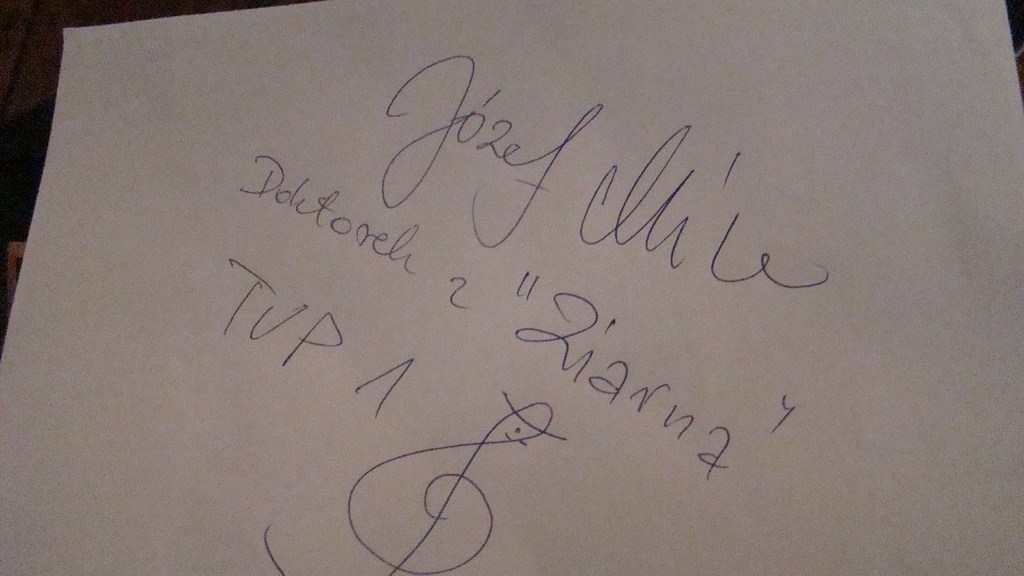 Józef Mika
Doktorek z "Ziarna"
TVP 1